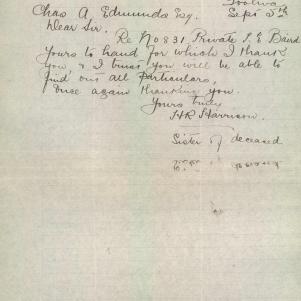 Sept 5th
Chas A. Edmunds Esq.
Dear Sir.
Re No 831 Private S. E. Baird
Yours to hand for which I thank
you & I trust you will be able to
find out all particulars,
once again thanking you.
Yours truly
H R Harrison.
Sister of deceased